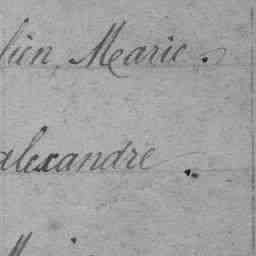 lien Marie.
alexandre.